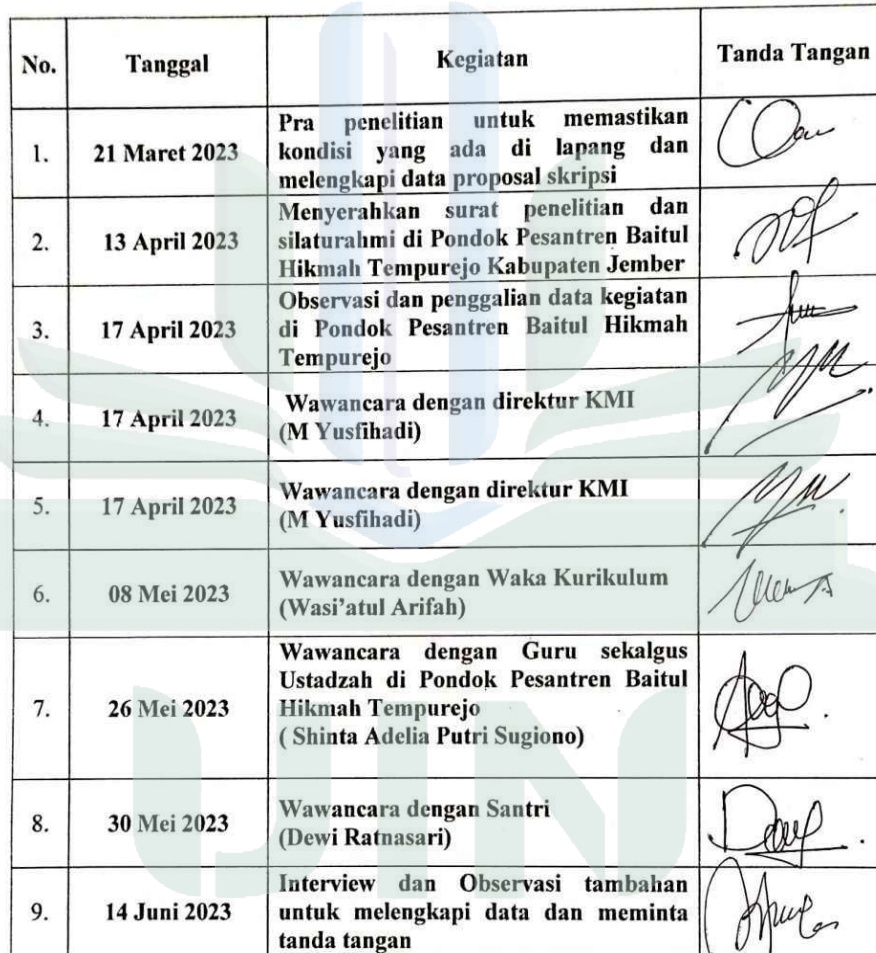 No. Tanggal Kegiatan Tanda Tangan
1. 21 Maret 2023 Pra penelitian untuk memastikan
kondisi yang ada di lapang dan
melengkapi data proposal skripsi
2. 13 April 2023 Menyerahkan surat penelitian dan
silaturahmi di Pondok Pesantren Baitul
Hikmah Tempurejo Kabupaten Jember
3. 17 April 2023 Observasi dan penggalian data kegiatan
di Pondok Pesantren Baitul Hikmah
Tempurejo
4. 17 April 2023 Wawancara dengan direktur KMI
(M Yusfihadi)
5. 17 April 2023 Wawancara dengan direktur KMI
(M Yusfihadi)
6. 08 Mei 2023 Wawancara dengan Waka Kurikulum
(Wasi'atul Arifah)
7. 26 Mei 2023 Wawancara dengan Guru sekalgus
Ustadzah di Pondok Pesantren Baitul
Hikmah Tempurejo
( Shinta Adelia Putri Sugiono)
8. 30 Mei 2023 Wawancara dengan Santri
(Dewi Ratnasari)
9. 14 Juni 2023 Interview dan Observasi tambahan
untuk melengkapi data dan meminta
tanda tangan
UIN